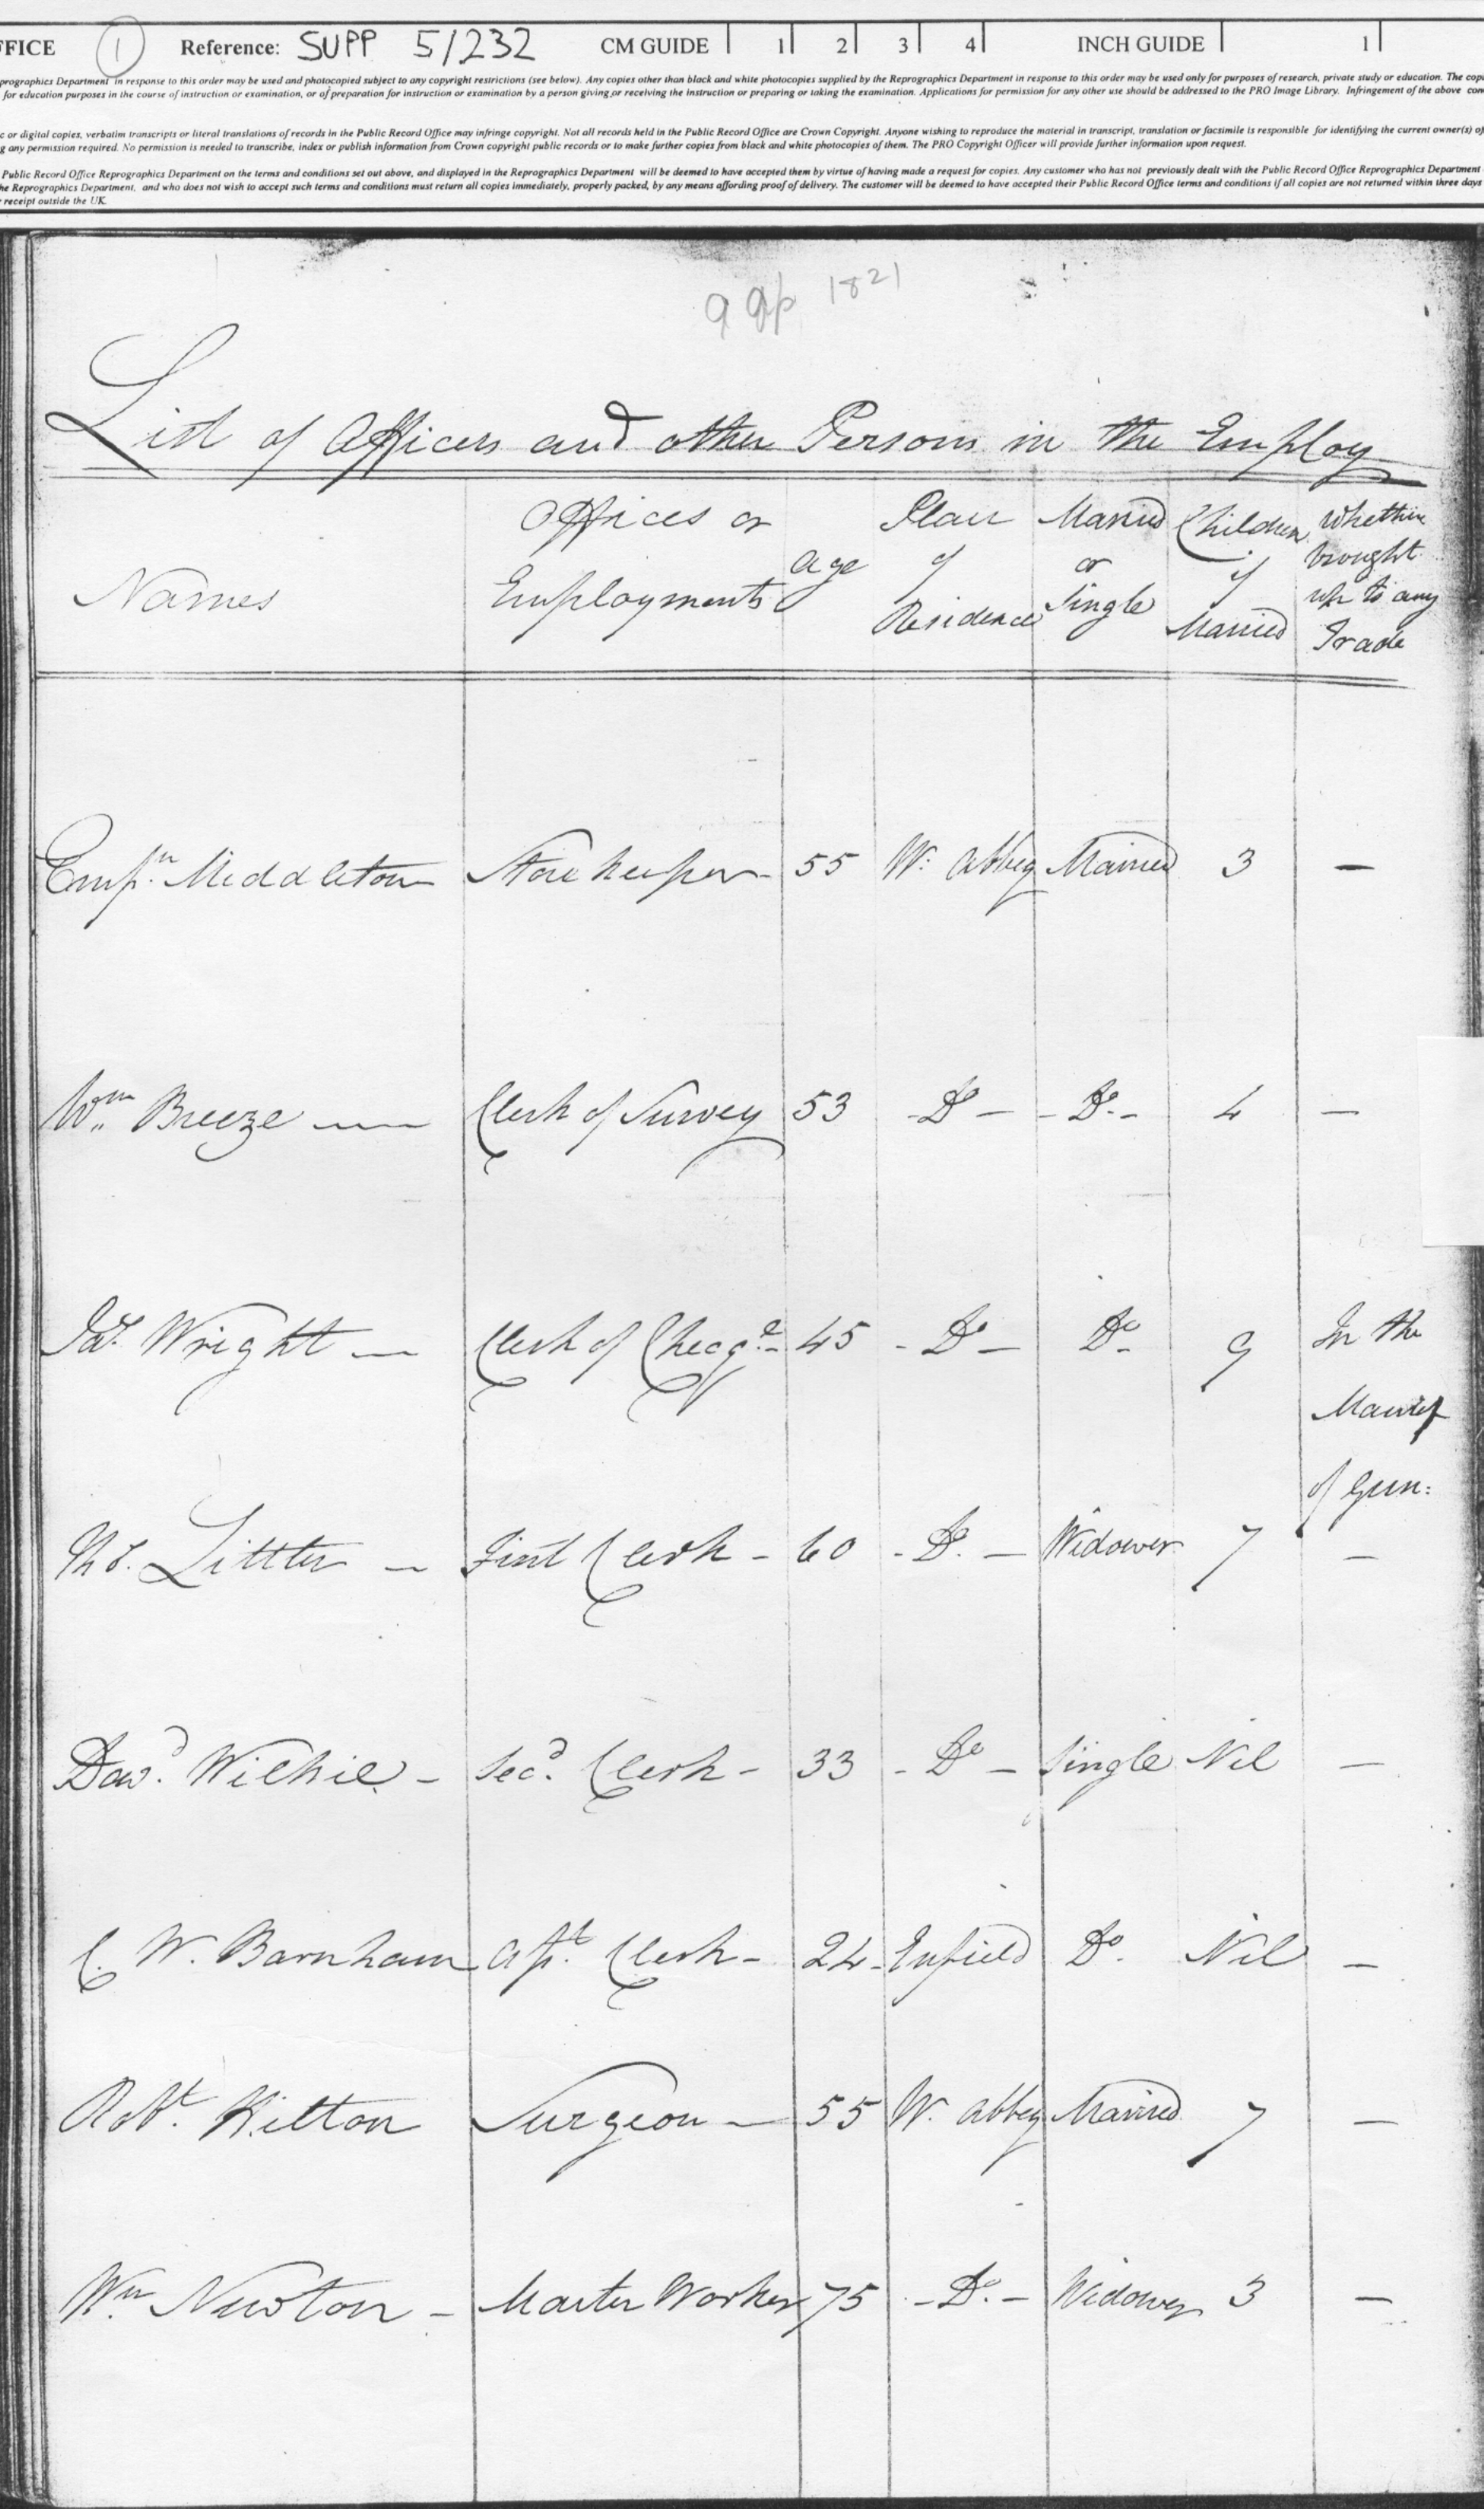 FFICE 1 Reference: SUPP 5/232 CM GUIDE 1 2 3 4 INCH GUIDE 1
prographics Department in response to this order may be used and photocopied subject to any copyright restrictions (see below). Any copies other than black and white photocopies supplied by the Reprographics Department in response to this order may be used only for purposes of research, private study or education. The cop
for education purposes in the course of instruction or examination, or of preparation for instruction or examination by a person giving or receiving the instruction or preparing or taking the examination. Applications for permission for any other use should be addressed to the PRO Image Library. Infringement of the above con
c or digital copies, verbatim transcripts or literal translations of records in the Public Record Office may infringe copyright. Not all records held in the Public Record Office are Crown Copyright. Anyone wishing to reproduce the material in transcript, translation or facsimile is responsible for identifying the current owner(s) of
g any permission required. No permission is needed to transcribe, index or publish information from Crown copyright public records or to make further copies from black and white photocopies of them. The PRO Copyright Officer will provide further information upon request.
Public Record Office Reprographics Department on the terms and conditions set out above, and displayed in the Reprographics Department will be deemed to have accepted them by virtue of having made a request for copies. Any customer who has not previously dealt with the Public Record Office Reprographics Department
he Reprographics Department, and who does not wish to accept such terms and conditions must return all copies immediately, properly packed, by any means affording proof of delivery. The customer will be deemed to have accepted their Public Record Office terms and conditions if all copies are not returned within three days
receipt outside the UK.
1821
List of Officers and other Persons in the Employ
Names
Offices or
Employments
Age
Place
of
Residence
Married
or
Single
Children
if
Married
Whether
brought
up to any
Trade
Empn. Middleton Storekeeper - 55 W. Abbey Married 3 -
Wm. Breeze - Clerk of Survey 53 - Do - - Do. - 4 -
Jas. Wright - Clerk of Checqe. - 45 - Do - Do - 9 In the
Manuf
of Gun:
Ths. Littler - First Clerk - 60 - Do. - Widower 7 -
Davd. Wilkie - Secd. Clerk - 33 - Do - Single Nil -
C. W. Barnham Clerk - 24 - Enfield Do. Nil -
Robt. Hilton Surgeon - 55 W. Abbey Married 7 -
Wm Newton - Master Worker 75 - Do. - Widower 3 -